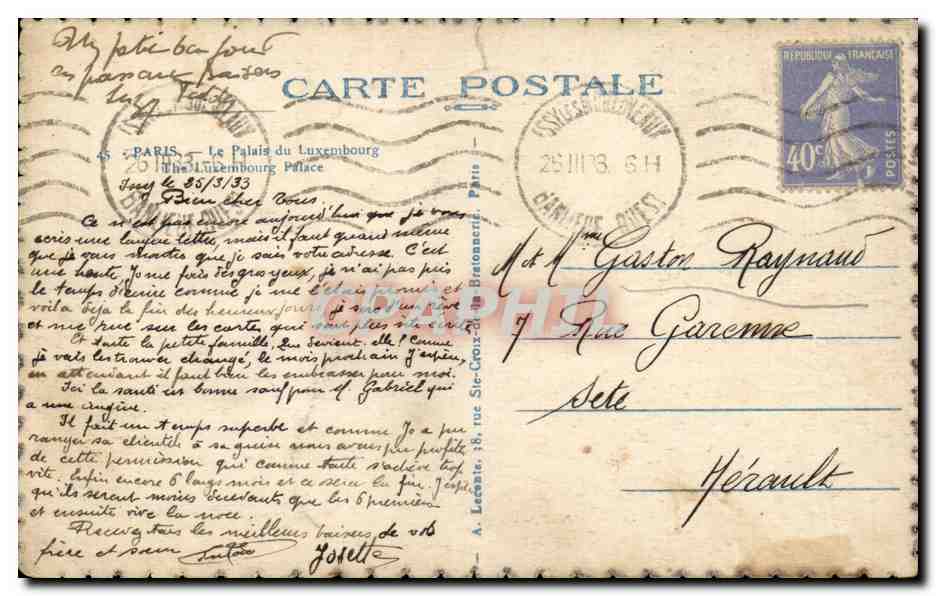 CARTE POSTALE
45 - PARIS - Le Palais du Luxembourg
The Luxembourg Palace
REPUBLIQUE FRANÇAISE
40c
POSTES
ISSY LES MOULINEAUX
26 III 33 6 H
en passant baisers
Teddy
Issy le 25/3/33
Bien cher Tous
Ce n'est pas encore aujourd'hui que je vous
écris une longue lettre, mais il faut quand même
que je vous montre que je sais votre adresse. C'est
une honte, Jo me fais des gros yeux, je n'ai pas pris
le temps d'écrire comme je me l'étais promis et
voilà déjà la fin des heureux jours, je
et me rue sur les cartes qui sont plus vite
Et toute la petite famille, que devient elle! Comme
je vais les trouver changé, le mois prochain j'espère,
en attendant il faut bien les embrasser pour moi.
Ici la santé est bonne sauf pour M. Gabriel qui
a une angine.
Il fait un temps superbe et comme Jo a pu
ranger sa clientèle à sa guise nous avons pu profiter
de cette permission qui comme toute s'achève trop
vite. Enfin encore 6 longs mois et ce sera la fin. J'espère
qu'ils seront moins decevants que les 6 premiers
et ensuite vive la noce.
Recevez tous les meilleurs baisers de vos
frère et soeur
Josette
A. Leconte, 38, rue Ste-Croix-de-la-Bretonnerie, Paris
CPAPHIL
M et Mme Gaston Raynaud
7 Rue Garenne
Sete
Hérault